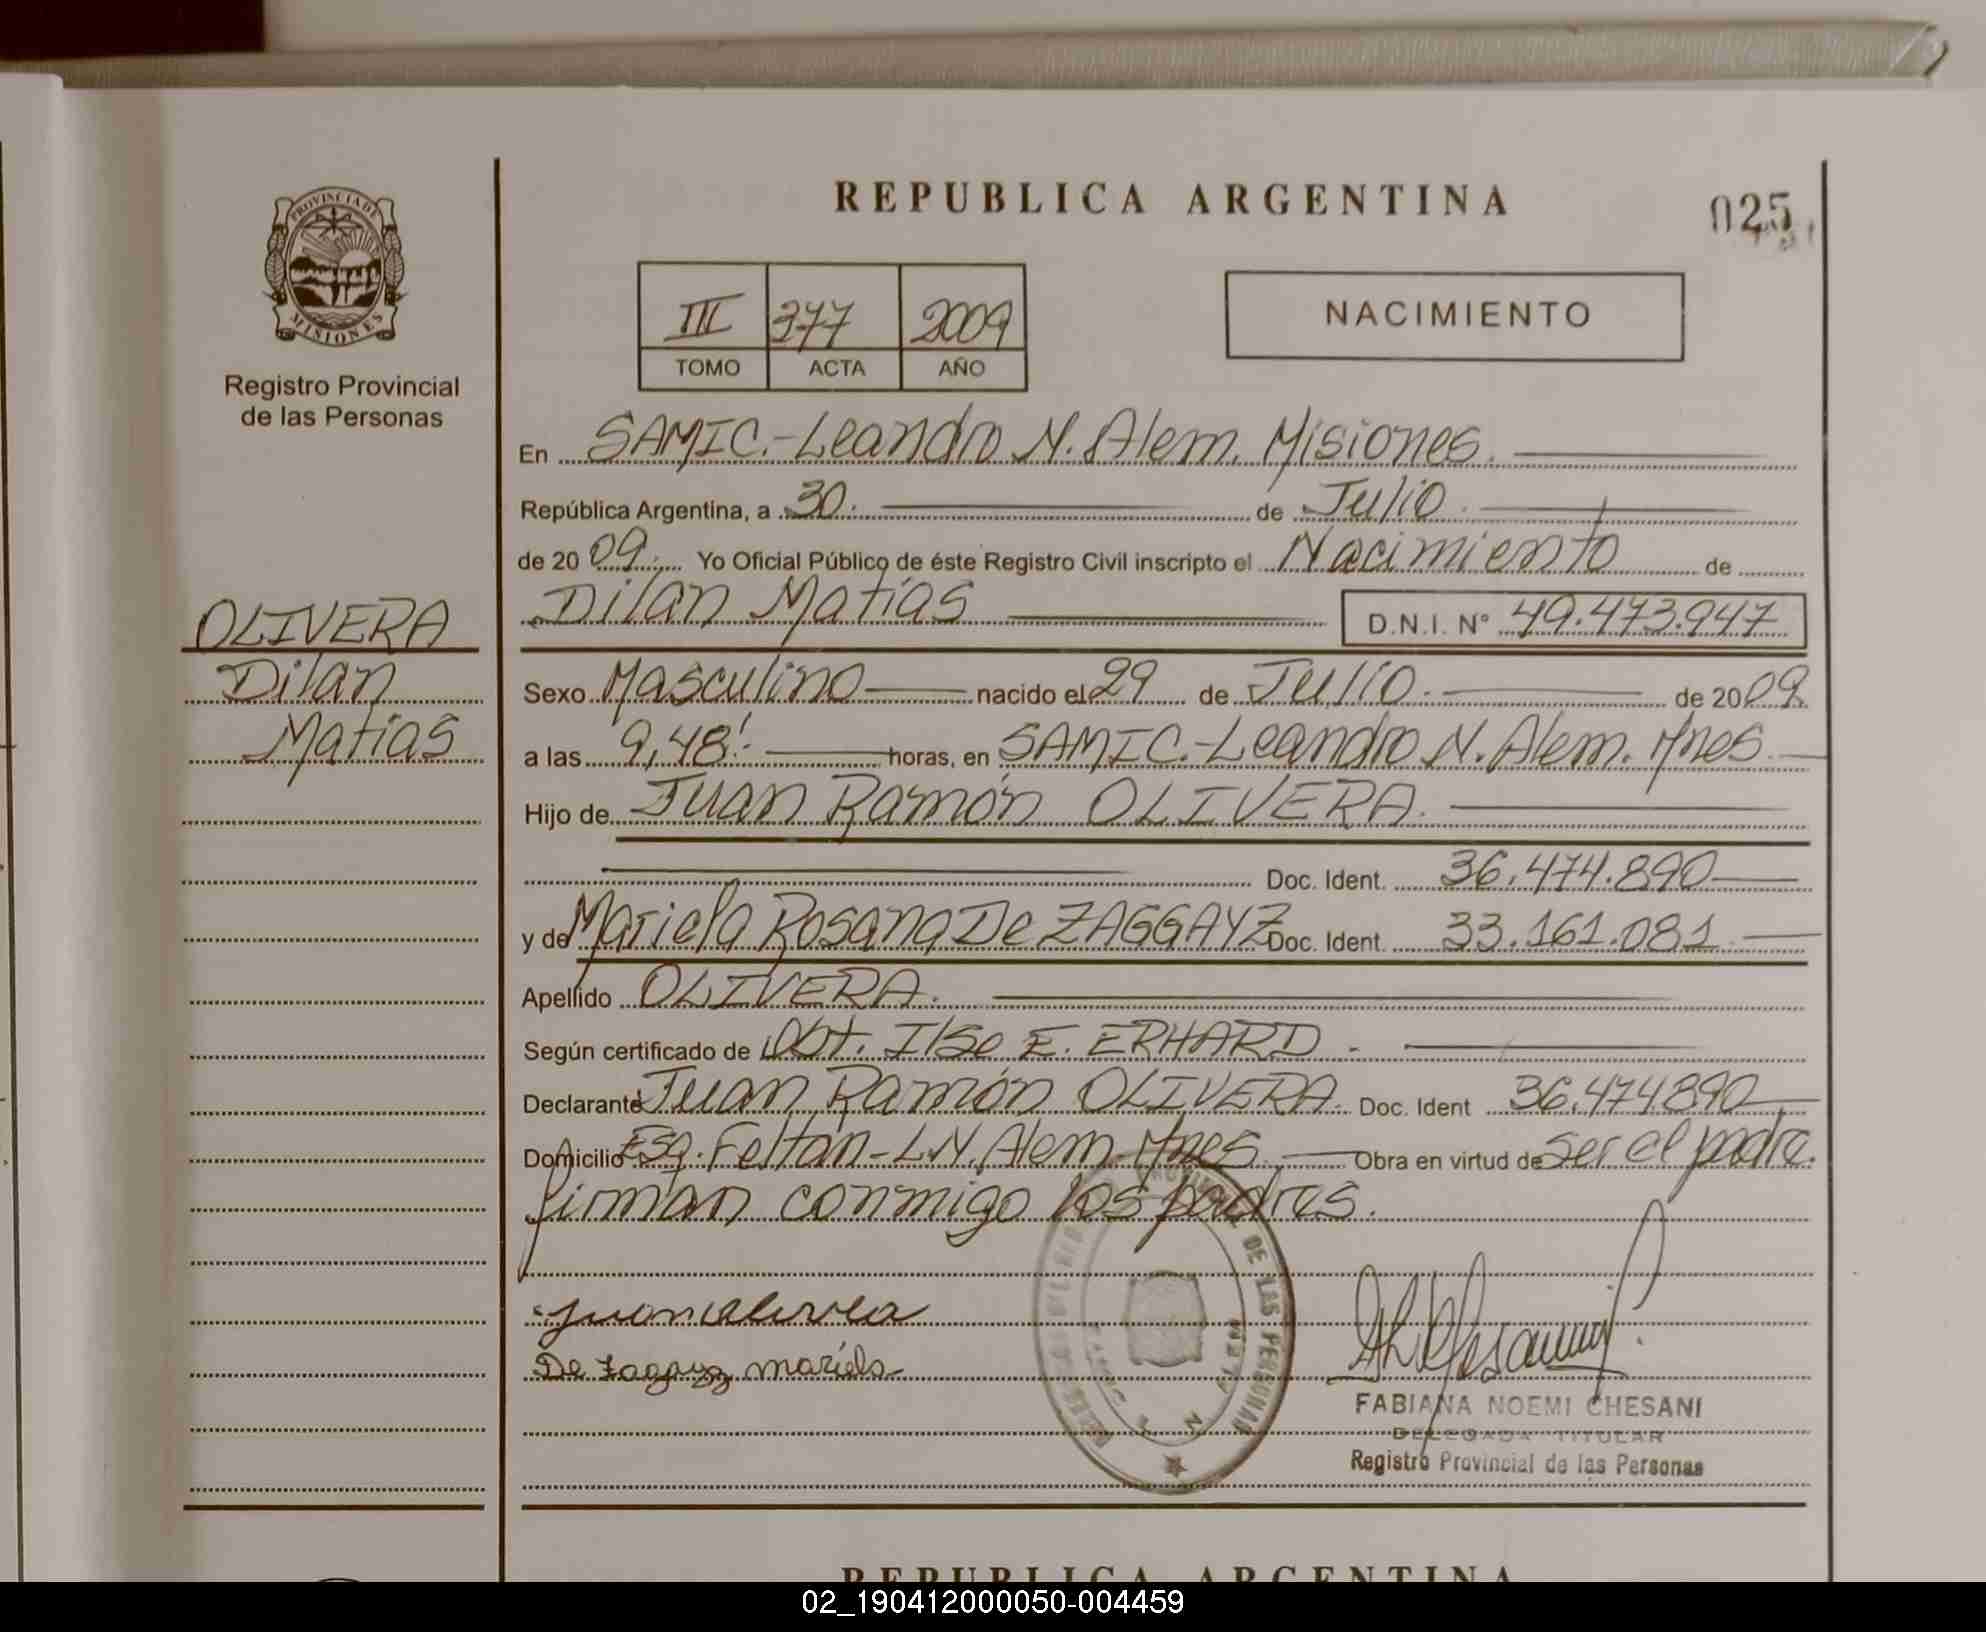 REPUBLICA ARGENTINA
025
PROVINCIA DE
MISIONES
Registro Provincial
de las Personas
III 377 2009
TOMO ACTA AÑO
NACIMIENTO
En SAMIC.-Leandro N. Alem. Misiones.
República Argentina, a 30. de Julio.
de 20 09. Yo Oficial Público de éste Registro Civil inscripto el Nacimiento de
Dilan Matías D.N.I. N° 49.473.947
OLIVERA
Dilan
Matías
Sexo Masculino nacido el 29 de Julio. de 20 09.
a las 9,48'. horas, en SAMIC.-Leandro N. Alem. Mnes
Hijo de Juan Ramón OLIVERA.
Doc. Ident. 36.474.890
y de Mariela Rosana De ZAGGAYZ Doc. Ident. 33.161.081
Apellido OLIVERA.
Según certificado de Obt. Ilse E. ERHARD.
Declarante Juan Ramón OLIVERA. Doc. Ident 36.474890
Domicilio Esq. Feltan-L.N. Alem Mnes. Obra en virtud de ser el padre.
firman conmigo los padres.
De Zagayz mariela
FABIANA NOEMI CHESANI
DELEGADA TITULAR
Registro Provincial de las Personas
REPUBLICA ARGENTINA
02_190412000050-004459